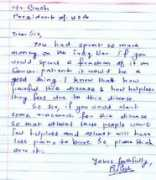 Mr. Bush
President of USA
Dear Sir,
You had spent so more
money on the Iraq War. If you
would spend a fraction of it on
Cancer patients it would be a
good thing. I know that how
painful this disease & how helpless
they feel due to this disease.
So, Sir, if you could start
some research for this disease
so that atleast these people won't
feel helpless and atleast will have
less pains to bear. So, please think
over it.
Yours faithfully,